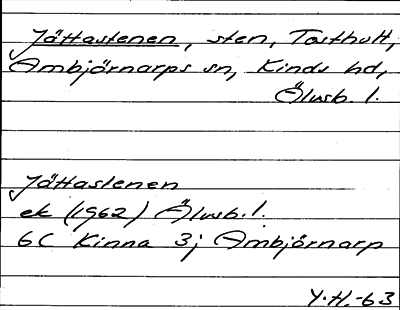 Jättastenen, sten, Tosthult,
Ambjörnarps sn, Kinds hd,
Älvsb. l.
Jättastenen
ek (1962) Älvsb. l.
6C Kinna 3j Ambjörnarp
Y.H.-63